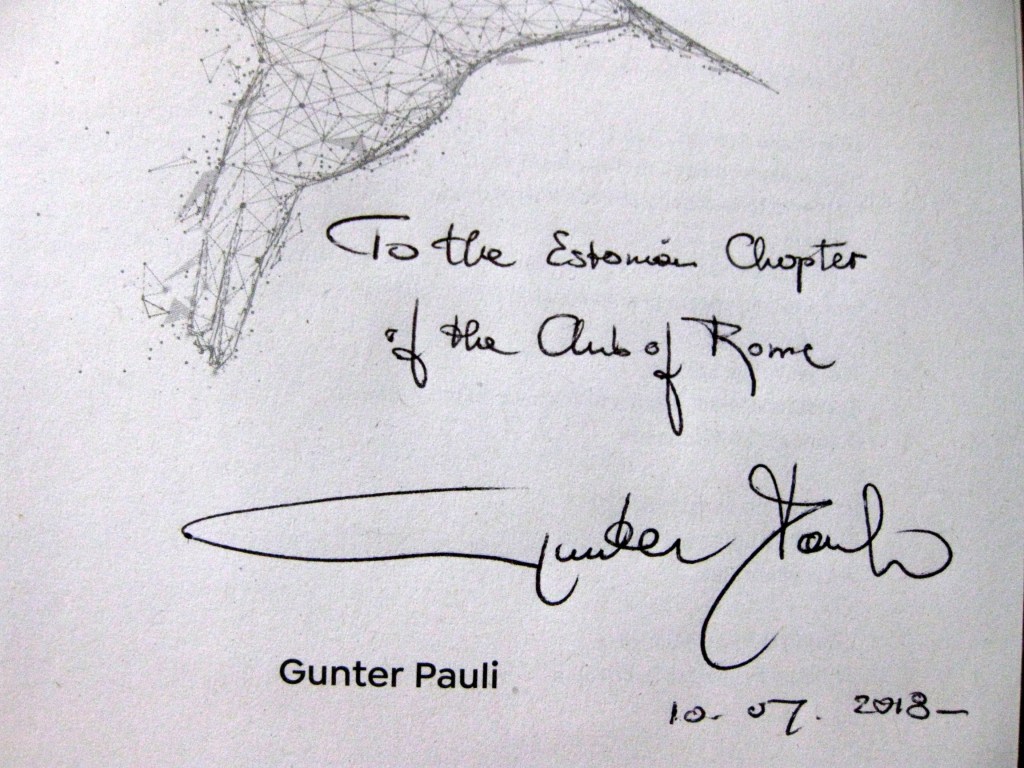 To the Estonian Chapter
of the Club of Rome
Gunter Pauli
Gunter Pauli
10. 07. 2018-